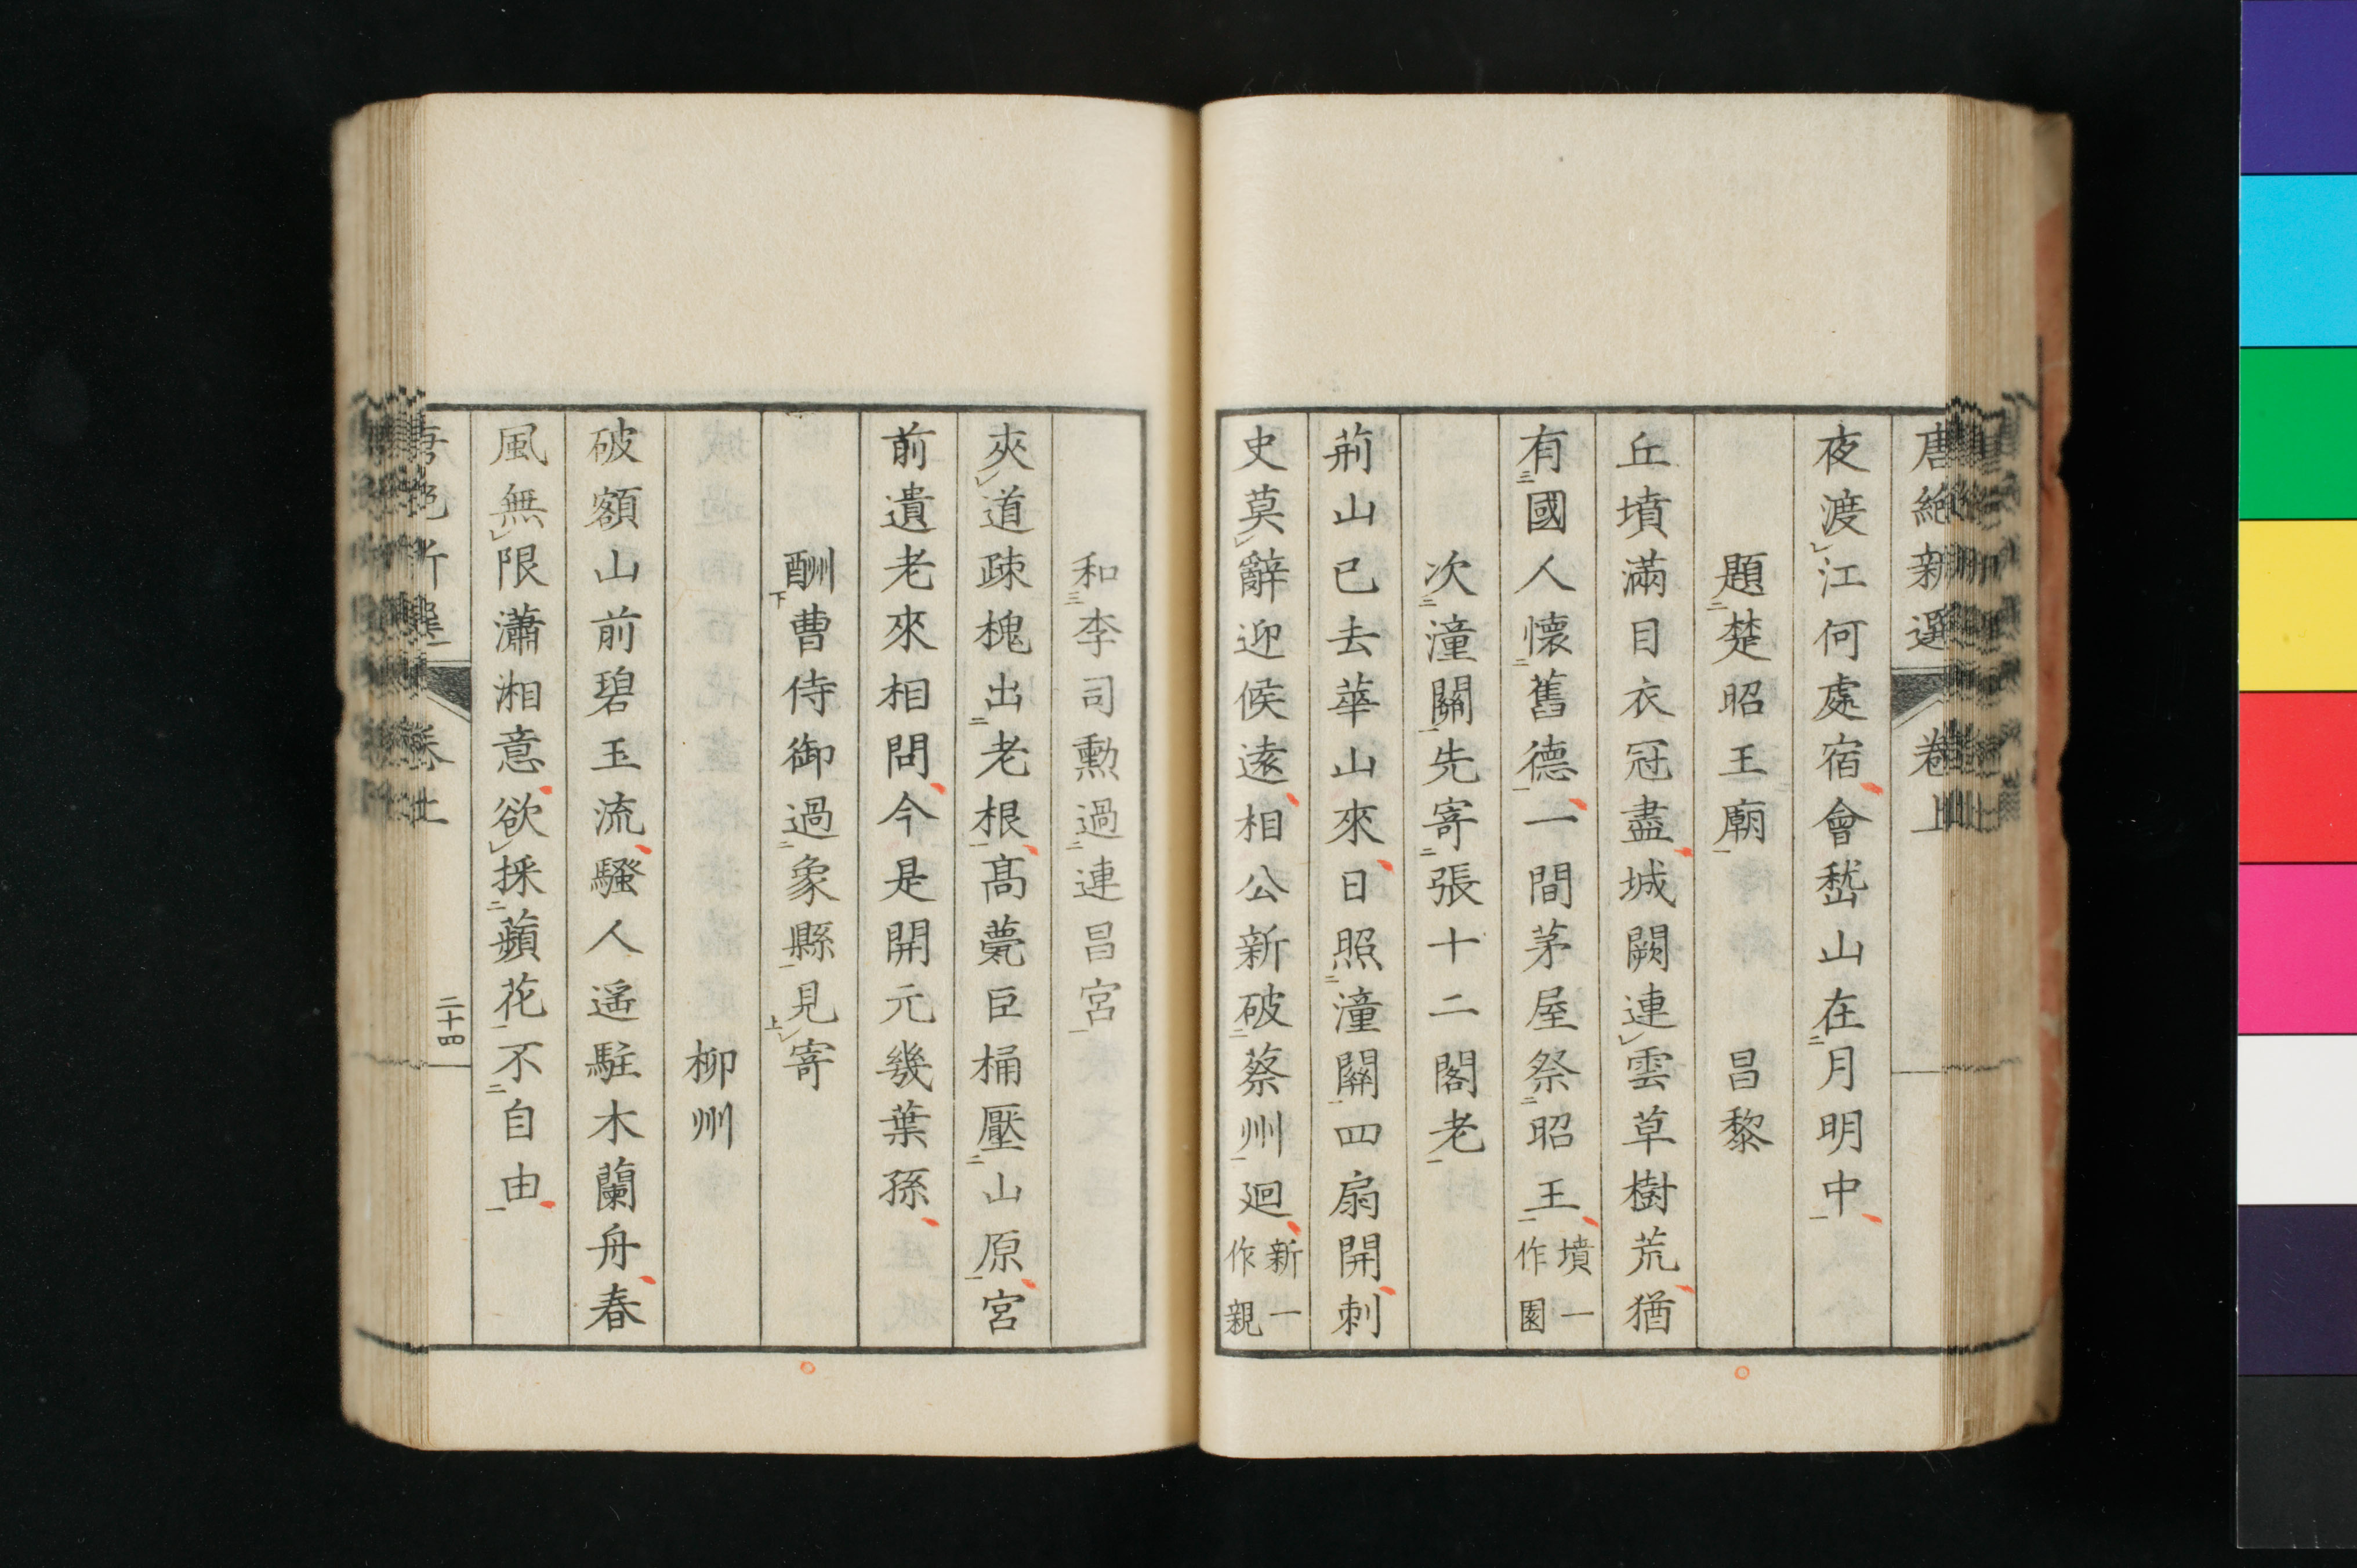 唐絶新選 卷上
夜渡江何處宿會嵇山在月明中
題楚昭王廟 昌黎
丘墳滿目衣冠盡城闕連雲草樹荒猶
有國人懷舊德一間茅屋祭昭王墳一作園
次潼關先寄張十二閣老
荊山已去華山來日照潼關四扇開刺
史莫辭迎候遠相公新破蔡州廻新一作親
和李司勲過連昌宮
夾道疎槐出老根髙甍巨桷壓山原宮
前遺老來相問今是開元幾葉孫
酬曹侍御過象縣見寄
柳州
破額山前碧玉流騷人遥駐木蘭舟春
風無限瀟湘意欲採蘋花不自由
二十四